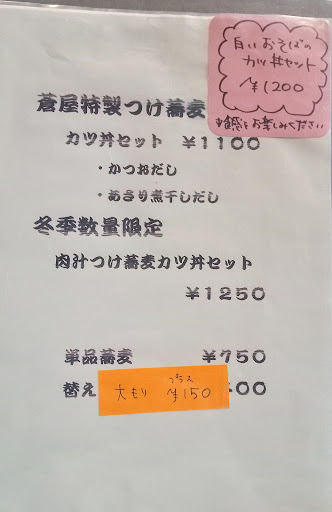 白いおそばの
カツ丼セット
¥1200
食感をお楽しみください
蒼屋特製つけ蕎麦
カツ丼セット ¥1100
・かつおだし
・あさり煮干しだし
冬季数量限定
肉汁つけ蕎麦カツ丼セット
¥1250
単品蕎麦 ¥750
替え 00
大もり プラス ¥150